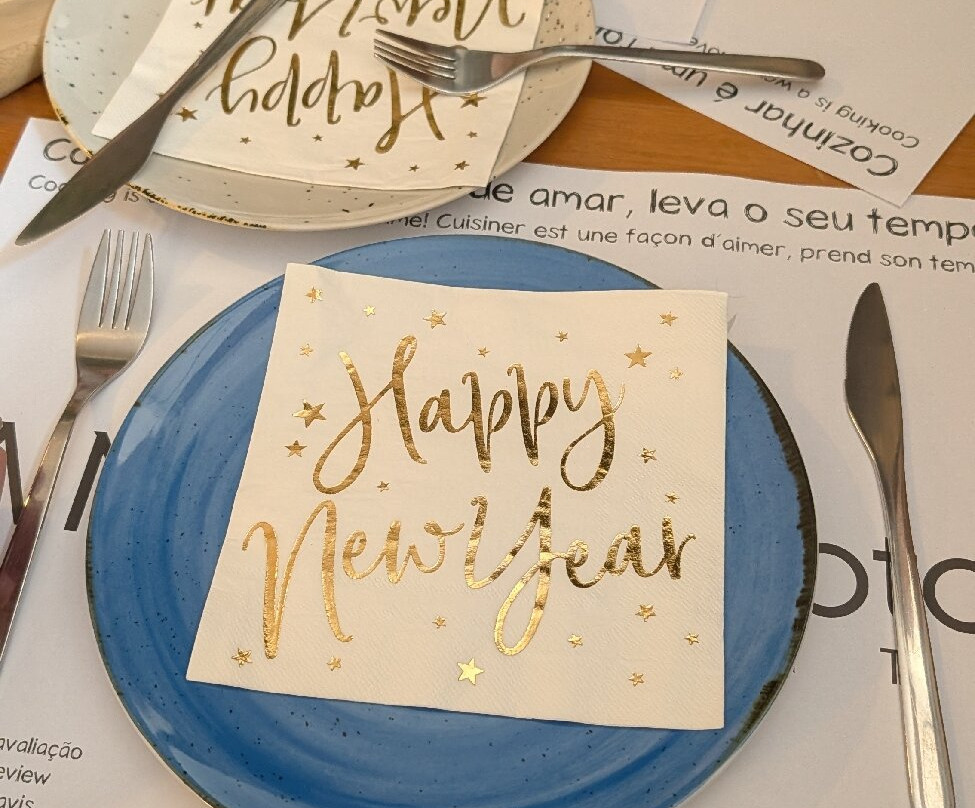 New Year
Happy
Cozinhar é um
Cooking is a w
de amar, leva o seu tempo
me! Cuisiner est une façon d'aimer, prend son tem
Happy
New Year
oto
avaliação
eview
avis